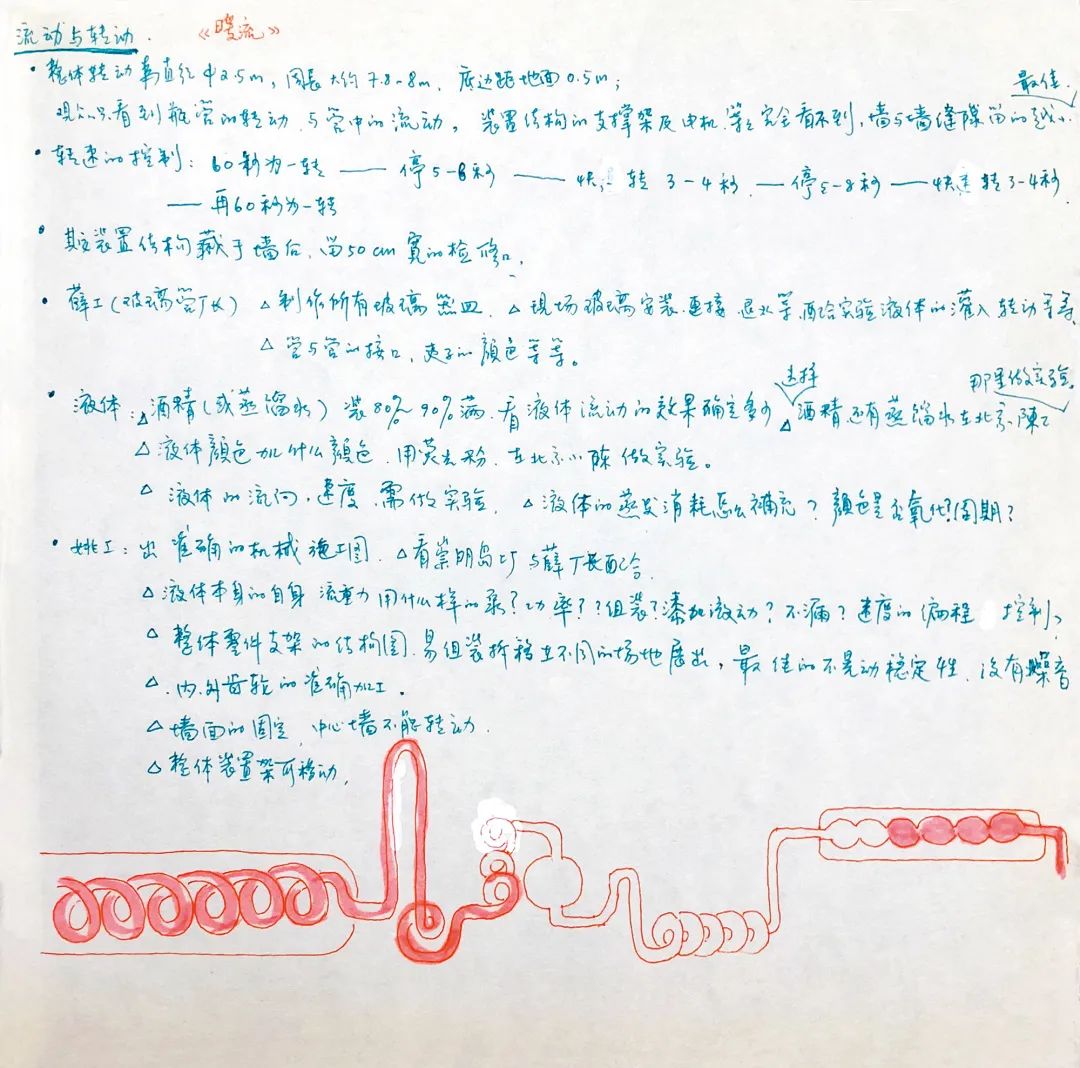 流动与转动. 《暖流》
• 整体转动轴直径φ2.5m, 周长大约7.8-8m. 底边距地面0.5m;
最佳.
观众只看到瓶管的转动与管中的流动, 装置结构的支撑架及电机等完全看不到, 墙与墙缝隙留的越小
• 转速的控制: 60秒为一转 —— 停5-8秒 —— 快速转3-4秒 —— 停5-8秒 —— 快速转3-4秒
—— 再60秒为一转
• 其它装置结构藏于墙后, 留50cm宽的检修口,
• 薛工(玻璃管厂长) △制作所有玻璃器皿. △现场玻璃安装.连接.退火等, 配合实验液体的灌入转动等等.
△管与管的接口, 夹子的颜色等等。
选择 那里做实验.
• 液体: △酒精(或蒸馏水) 装80%90%满.看液体流动的效果确定多少 △酒精还有蒸馏水在北京小陈
△液体颜色加什么颜色.用荧光粉.在北京小陈做实验。
△液体的流向,速度,需做实验. △液体的蒸发消耗怎么补充? 颜色是否氧化?周期?
• 姚工: 出准确的机械施工图. △看崇明岛工厂与薛厂长配合.
△液体本身的自身流动力用什么样的泵?功率??组装?添加流动?不漏?速度的编程控制?
△整体零件支架的结构图.易组装拆移在不同的场地展出, 最佳的不晃动稳定性.没有噪音
△.内.外齿轮的准确加工.
△墙面的固定.中心墙不能转动.
△整体装置架可移动.